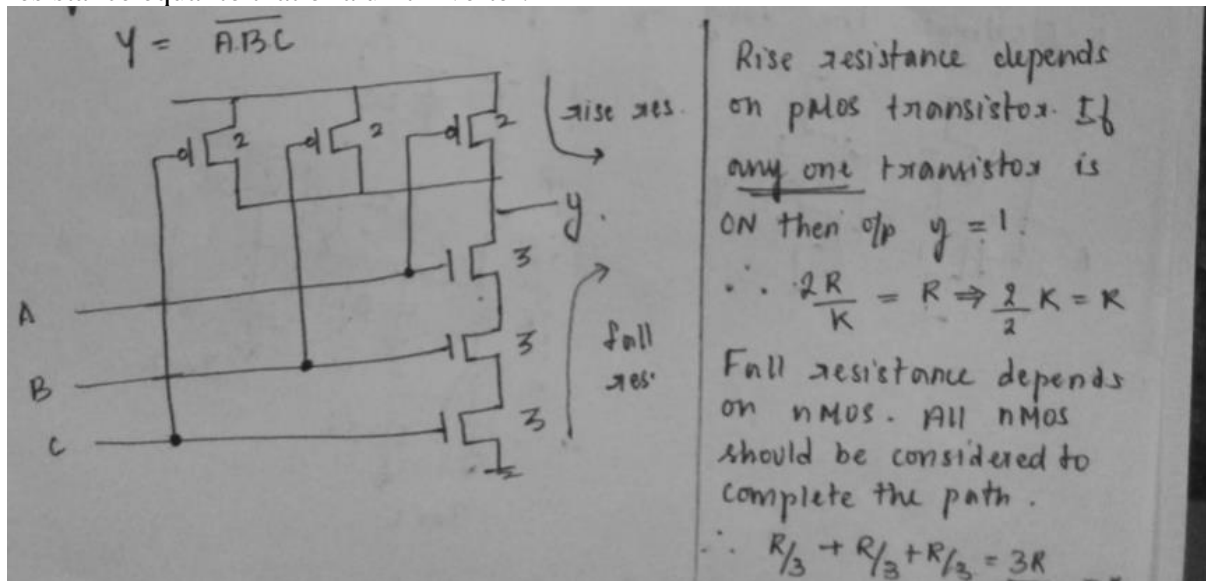 Y = \overline{A.B.C}
2
2
2
rise res.
y.
3
A
3
fall
res.
B
3
C
Rise resistance depends
on pMOS transistor. If
any one transistor is
ON then o/p y = 1.
∴ 2R/K = R ⇒ 2/2 K = R
Fall resistance depends
on nMOS. All nMOS
should be considered to
complete the path.
∴ R/3 + R/3 + R/3 = 3R